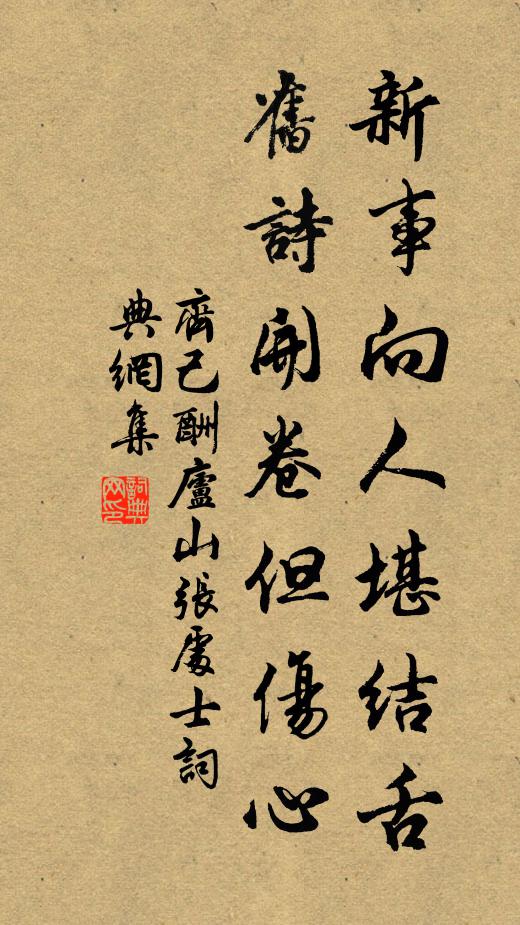 新事向人堪結舌
舊詩開卷但傷心
齊己酬廬山張處士詞
典網集
詞典網印